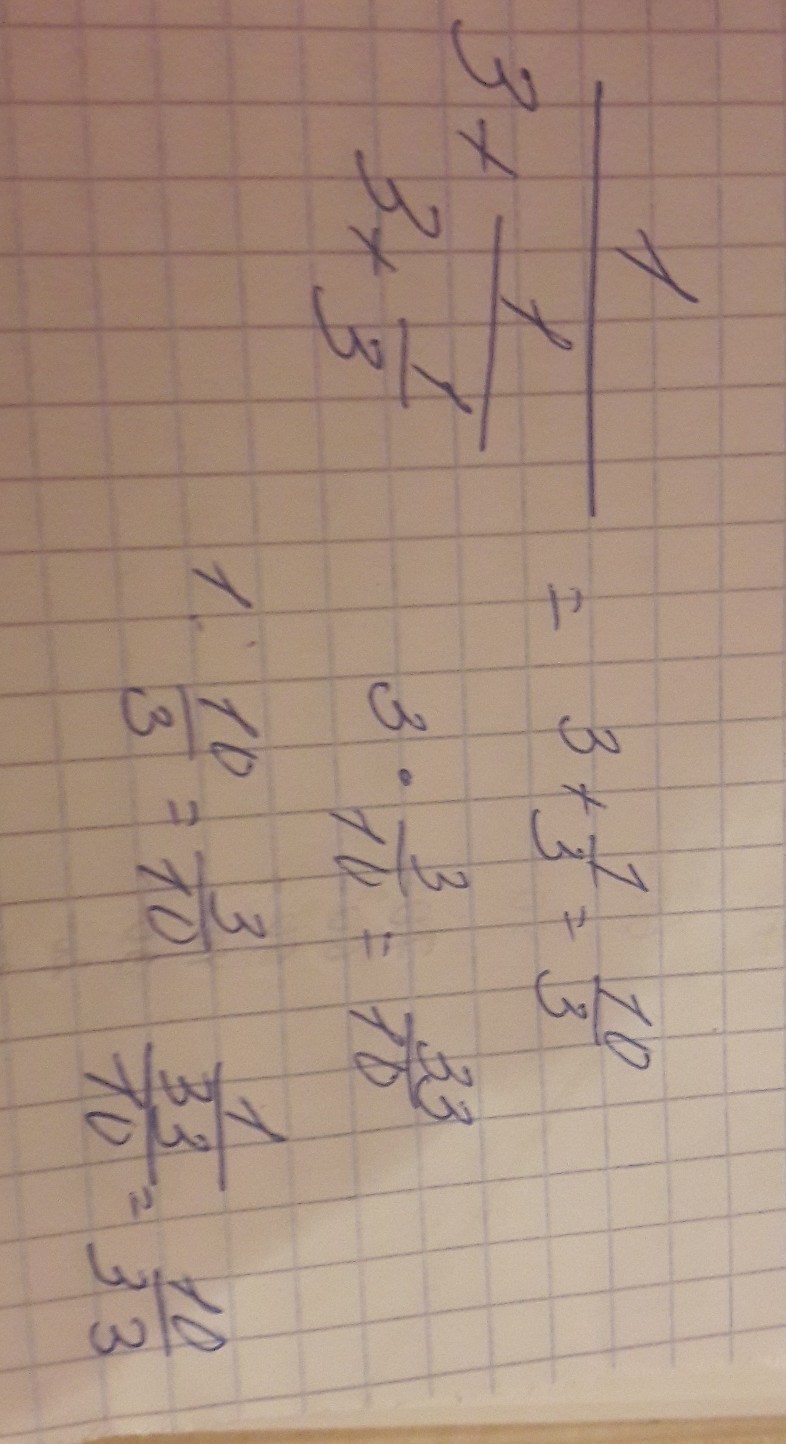 1/(3+1/(3+1/3)) = 3+1/3 = 10/3
3 · 3/10 = 33/10
1 : 10/3 = 3/10 1/(33/10) = 10/33